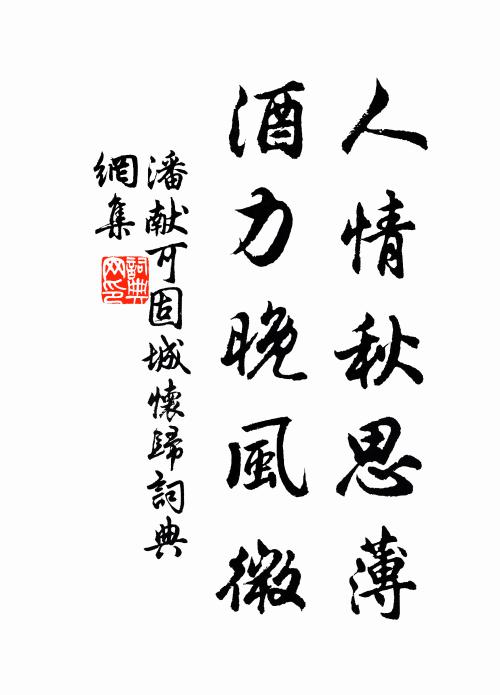 人情秋思薄
酒力晚風微
潘献可固城懷歸詞典
網集